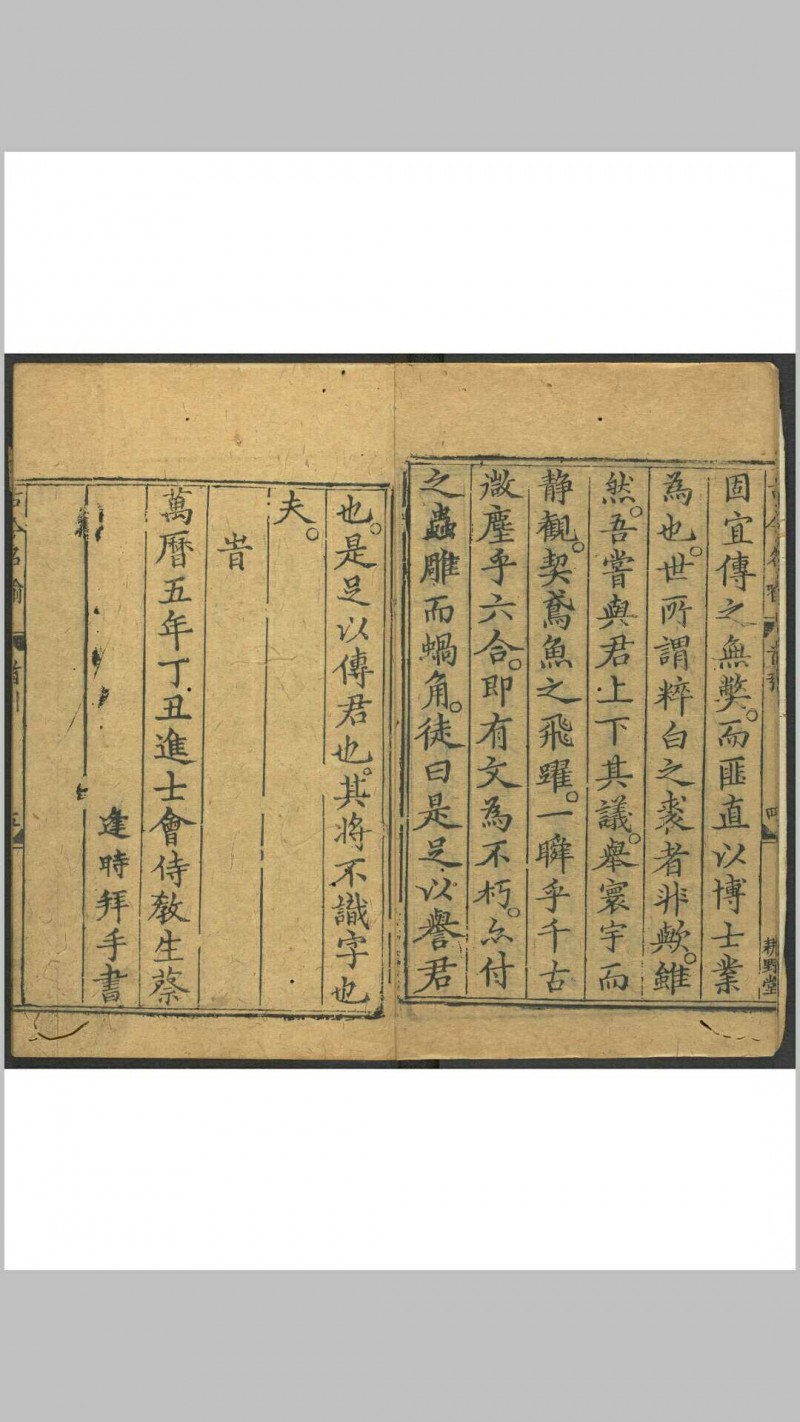 耕野堂
固宜傳之無獘。而匪直以博士業
為也。世所謂粹白之裘者非歟。雖
然。吾嘗與君上下其議。舉寰宇而
静觀。契鳶魚之飛躍。一瞬乎千古
微塵乎六合。即有文為不朽。亦付
之蟲雕而蝸角。徒曰是足以譽君
也。是足以傳君也。其將不識字也
夫。
旹
萬曆五年丁丑進士會侍教生蔡
逢時拜手書